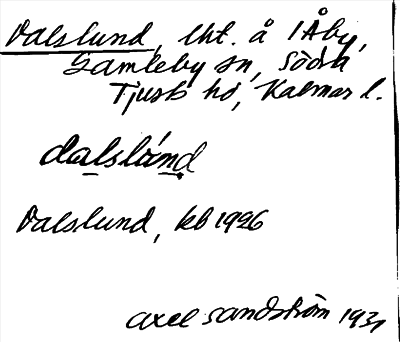 Dalslund, lht. å 1 Åby,
Gamleby sn, Södra
Tjust hd, Kalmar l.
dalslúnd
Dalslund, kb 1926
Axel Sandström 1931